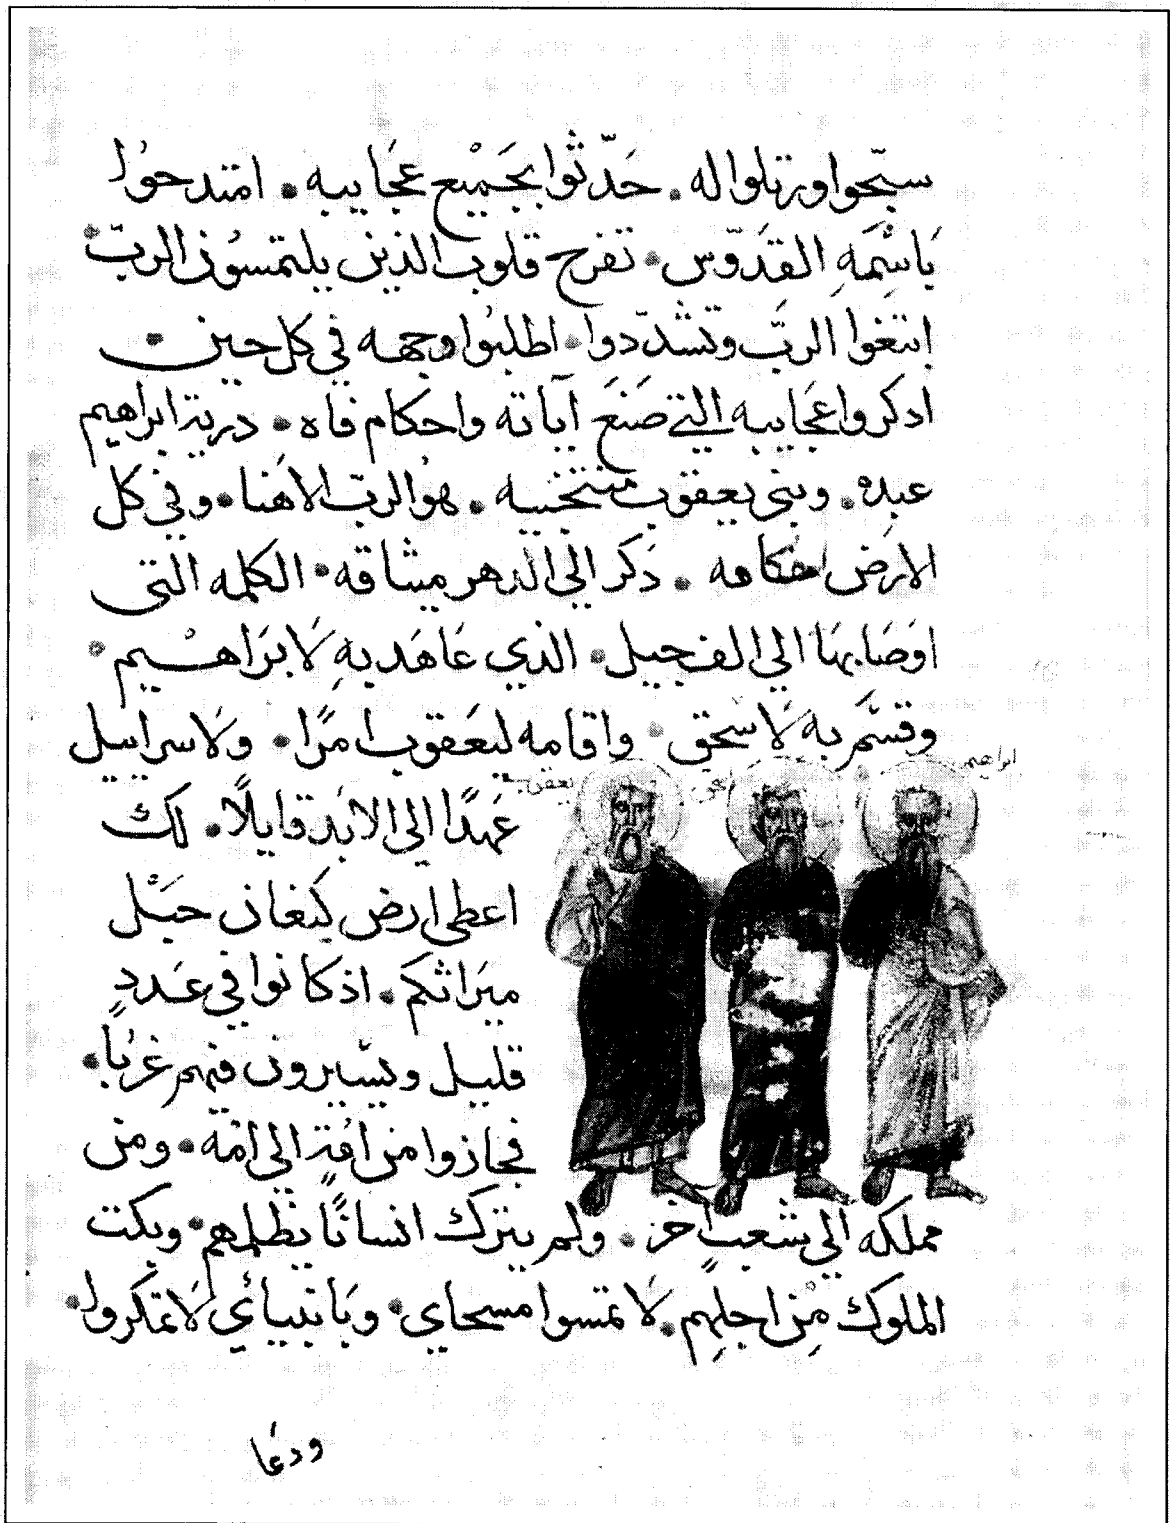 سبّحوا ورتلوا له . حَدّثوا بجَميْع عجَايبه . امتدحوُا
بَاسْمَهِ القدّوس . تفرح قلوب الذين يلتمسُون الربّ .
ابتغوا الربّ وتشدّدوا . اطلبُوا وجهه في كل حين .
ادكروا عجَايبه التي صَنعَ آياته واحكام فاه . درية ابراهيم
عبده . وبني يعقوب منتخبيه . هوُ الربّ الاهَنا . وفي كل
الارض احكامه . ذكر الي الدهر ميثاقه . الكلمه التي
اوصَا بهَا الي الف جيل . الذي عَاهَد بهِ لَابرَاهيْم .
وقسَم به لَاسْحق . واقامه ليَعَقوب امرًا . ولَاسراييل
ابراهيم
يعقوب
عَهدًا الي الابَد قايلًا . لك
اعطي ارض كَنعان حَبْل
ميَراثكم . اذ كانوا في عَددٍ
قليل ويسَيرون فيهم غربُاً .
فجازوا من امُةٍ الي امّة . ومن
مملكه الي شعبٍ اخر . ولم يترك انسانًا يظلمهم . وبكت
الملوك مِن اجلهِم . لَا تمسوا مسحاي . وبَانبيائي لَا تمكروا .
ودعَا